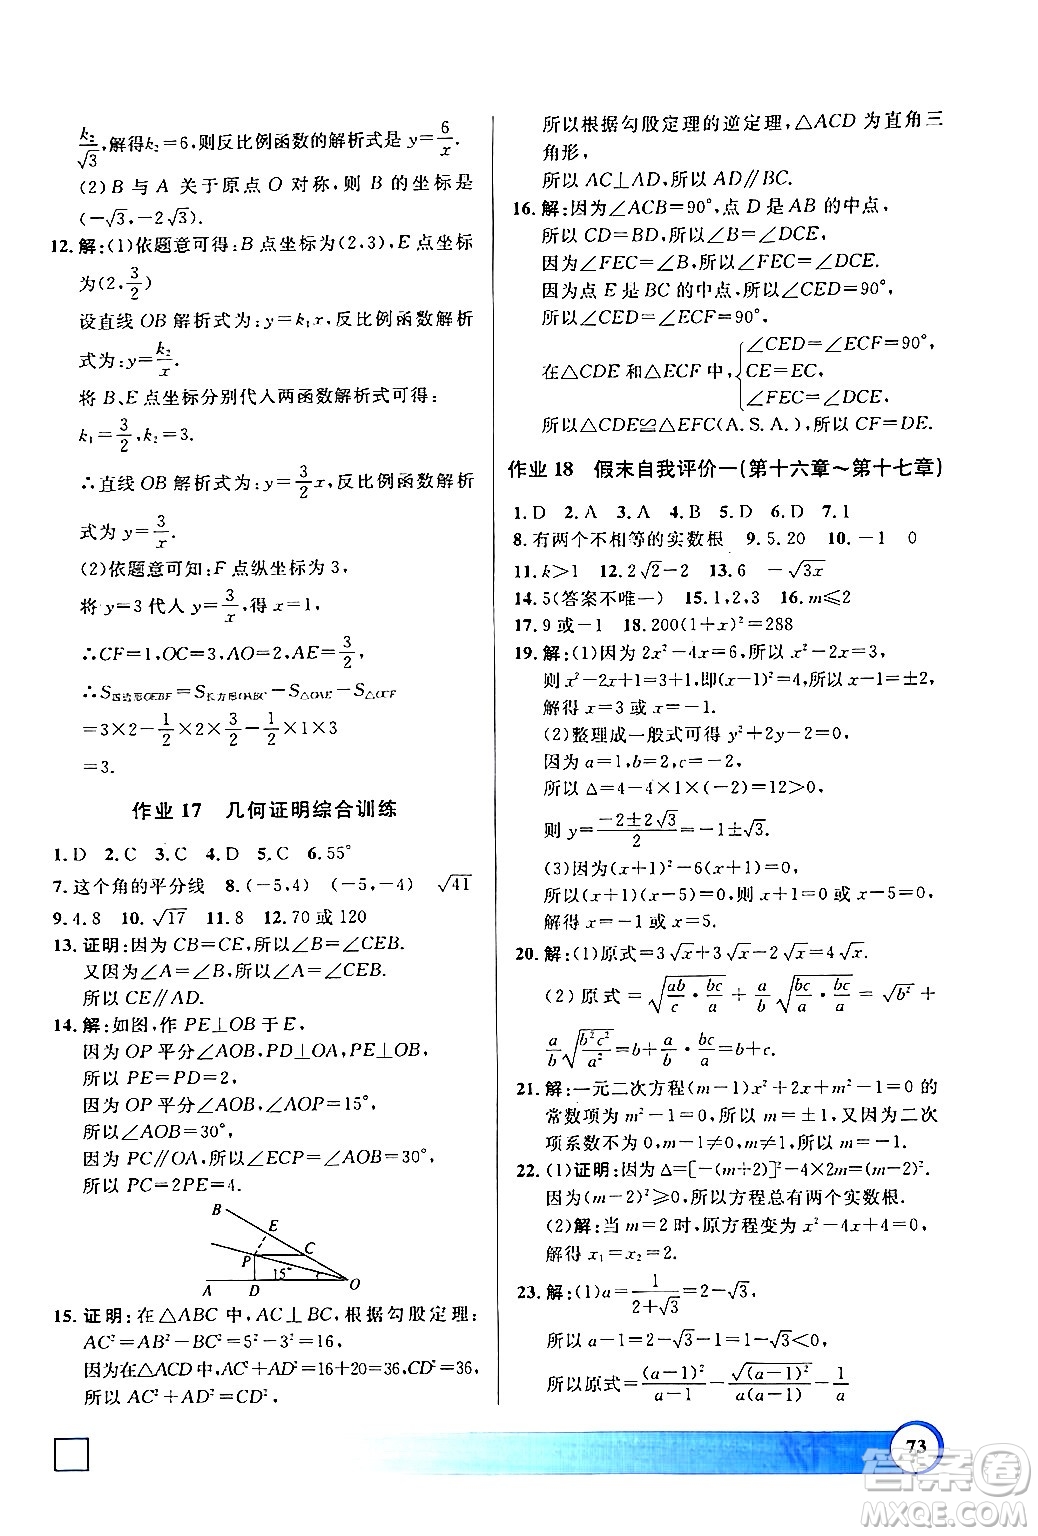 k₂/√3,解得k₂=6,则反比例函数的解析式是 y=6/x.
(2) B 与 A 关于原点 O 对称,则 B 的坐标是
(-√3,-2√3).
12.解:(1)依题意可得:B 点坐标为(2,3),E 点坐标
为(2,3/2)
设直线 OB 解析式为:y=k₁x,反比例函数解析
式为:y=k₂/x.
将 B、E 点坐标分别代人两函数解析式可得:
k₁=3/2,k₂=3.
∴直线 OB 解析式为:y=3/2x,反比例函数解析
式为 y=3/x.
(2)依题意可知:F 点纵坐标为 3,
将 y=3 代人 y=3/x,得 x=1,
∴CF=1,OC=3,AO=2,AE=3/2
∴S四边形OEBF=S长方形OABC-S△OAE-S△OCF
=3×2-1/2×2×3/2-1/2×1×3
=3.
作业 17 几何证明综合训练
1.D 2.C 3.C 4.D 5.C 6.55°
7.这个角的平分线 8.(-5,4) (-5,-4) √41
9.4.8 10.√17 11.8 12.70 或 120
13.证明:因为 CB=CE,所以∠B=∠CEB.
又因为∠A=∠B,所以∠A=∠CEB.
所以 CE∥AD.
14.解:如图,作 PE⊥OB 于 E,
因为 OP 平分∠AOB,PD⊥OA,PE⊥OB,
所以 PE=PD=2,
因为 OP 平分∠AOB,∠AOP=15°,
所以∠AOB=30°,
因为 PC∥OA,所以∠ECP=∠AOB=30°,
所以 PC=2PE=4.
B
E
P
C
15°
A D O
15.证明:在△ABC 中,AC⊥BC,根据勾股定理:
AC²=AB²-BC²=5²-3²=16,
因为在△ACD 中,AC²+AD²=16+20=36,CD²=36,
所以 AC²+AD²=CD²,
所以根据勾股定理的逆定理,△ACD 为直角三
角形,
所以 AC⊥AD,所以 AD∥BC.
16.解:因为∠ACB=90°,点 D 是 AB 的中点,
所以 CD=BD,所以∠B=∠DCE.
因为∠FEC=∠B,所以∠FEC=∠DCE.
因为点 E 是 BC 的中点,所以∠CED=90°,
所以∠CED=∠ECF=90°,
在△CDE 和△EFC 中,{∠CED=∠ECF=90°,
CE=EC,
∠FEC=∠DCE,
所以△CDE≌△EFC(A.S.A.),所以 CF=DE.
作业 18 假末自我评价一(第十六章～第十七章)
1.D 2.A 3.A 4.B 5.D 6.D 7.1
8.有两个不相等的实数根 9.5.20 10.-1 0
11.k>1 12.2√2-2 13.6 -√3x
14.5(答案不唯一) 15.1,2,3 16.m⩽2
17.9 或-1 18.200(1+x)²=288
19.解:(1)因为 2x²-4x=6,所以 x²-2x=3,
则 x²-2x+1=3+1,即(x-1)²=4,所以 x-1=±2,
解得 x=3 或 x=-1.
(2)整理成一般式可得 y²+2y-2=0,
因为 a=1,b=2,c=-2,
所以 Δ=4-4×1×(-2)=12>0,
则 y=(-2±2√3)/2=-1±√3.
(3)因为(x+1)²-6(x+1)=0,
所以(x+1)(x-5)=0,则 x+1=0 或 x-5=0,
解得 x=-1 或 x=5.
20.解:(1)原式=3√x+3√x-2√x=4√x.
(2)原式=√(ab/c·bc/a)+a/b√(bc/a·bc/a)=√b²+
a/b√(b²c²/a²)=b+a/b·bc/a=b+c.
21.解:一元二次方程(m-1)x²+2x+m²-1=0 的
常数项为 m²-1=0,所以 m=±1,又因为二次
项系数不为 0,m-1≠0,m≠1,所以 m=-1.
22.(1)证明:因为 Δ=[-(m+2)]²-4×2m=(m-2)²,
因为(m-2)²⩾0,所以方程总有两个实数根.
(2)解:当 m=2 时,原方程变为 x²-4x+4=0,
解得 x₁=x₂=2.
23.解:(1)a=1/(2+√3)=2-√3,
所以 a-1=2-√3-1=1-√3<0,
所以原式=(a-1)²/(a-1)-√(a-1)²/(a(a-1))=a-1+1/a
73
答案圈
MXQE.COM